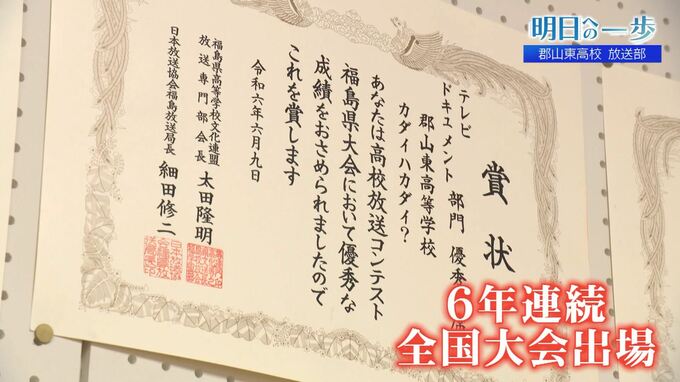 明日への一歩
郡山東高校 放送部
賞状
テレビ
ドキュメント部門 優秀
郡山東高等学校
カダイハカダイ?
あなたは高校放送コンテスト
福島県大会において優秀な
成績をおさめられましたので
これを賞します
令和六年六月九日
福島県高等学校文化連盟
放送専門部会長 太田隆明
日本放送協会福島放送局長 細田修二
6年連続
全国大会出場